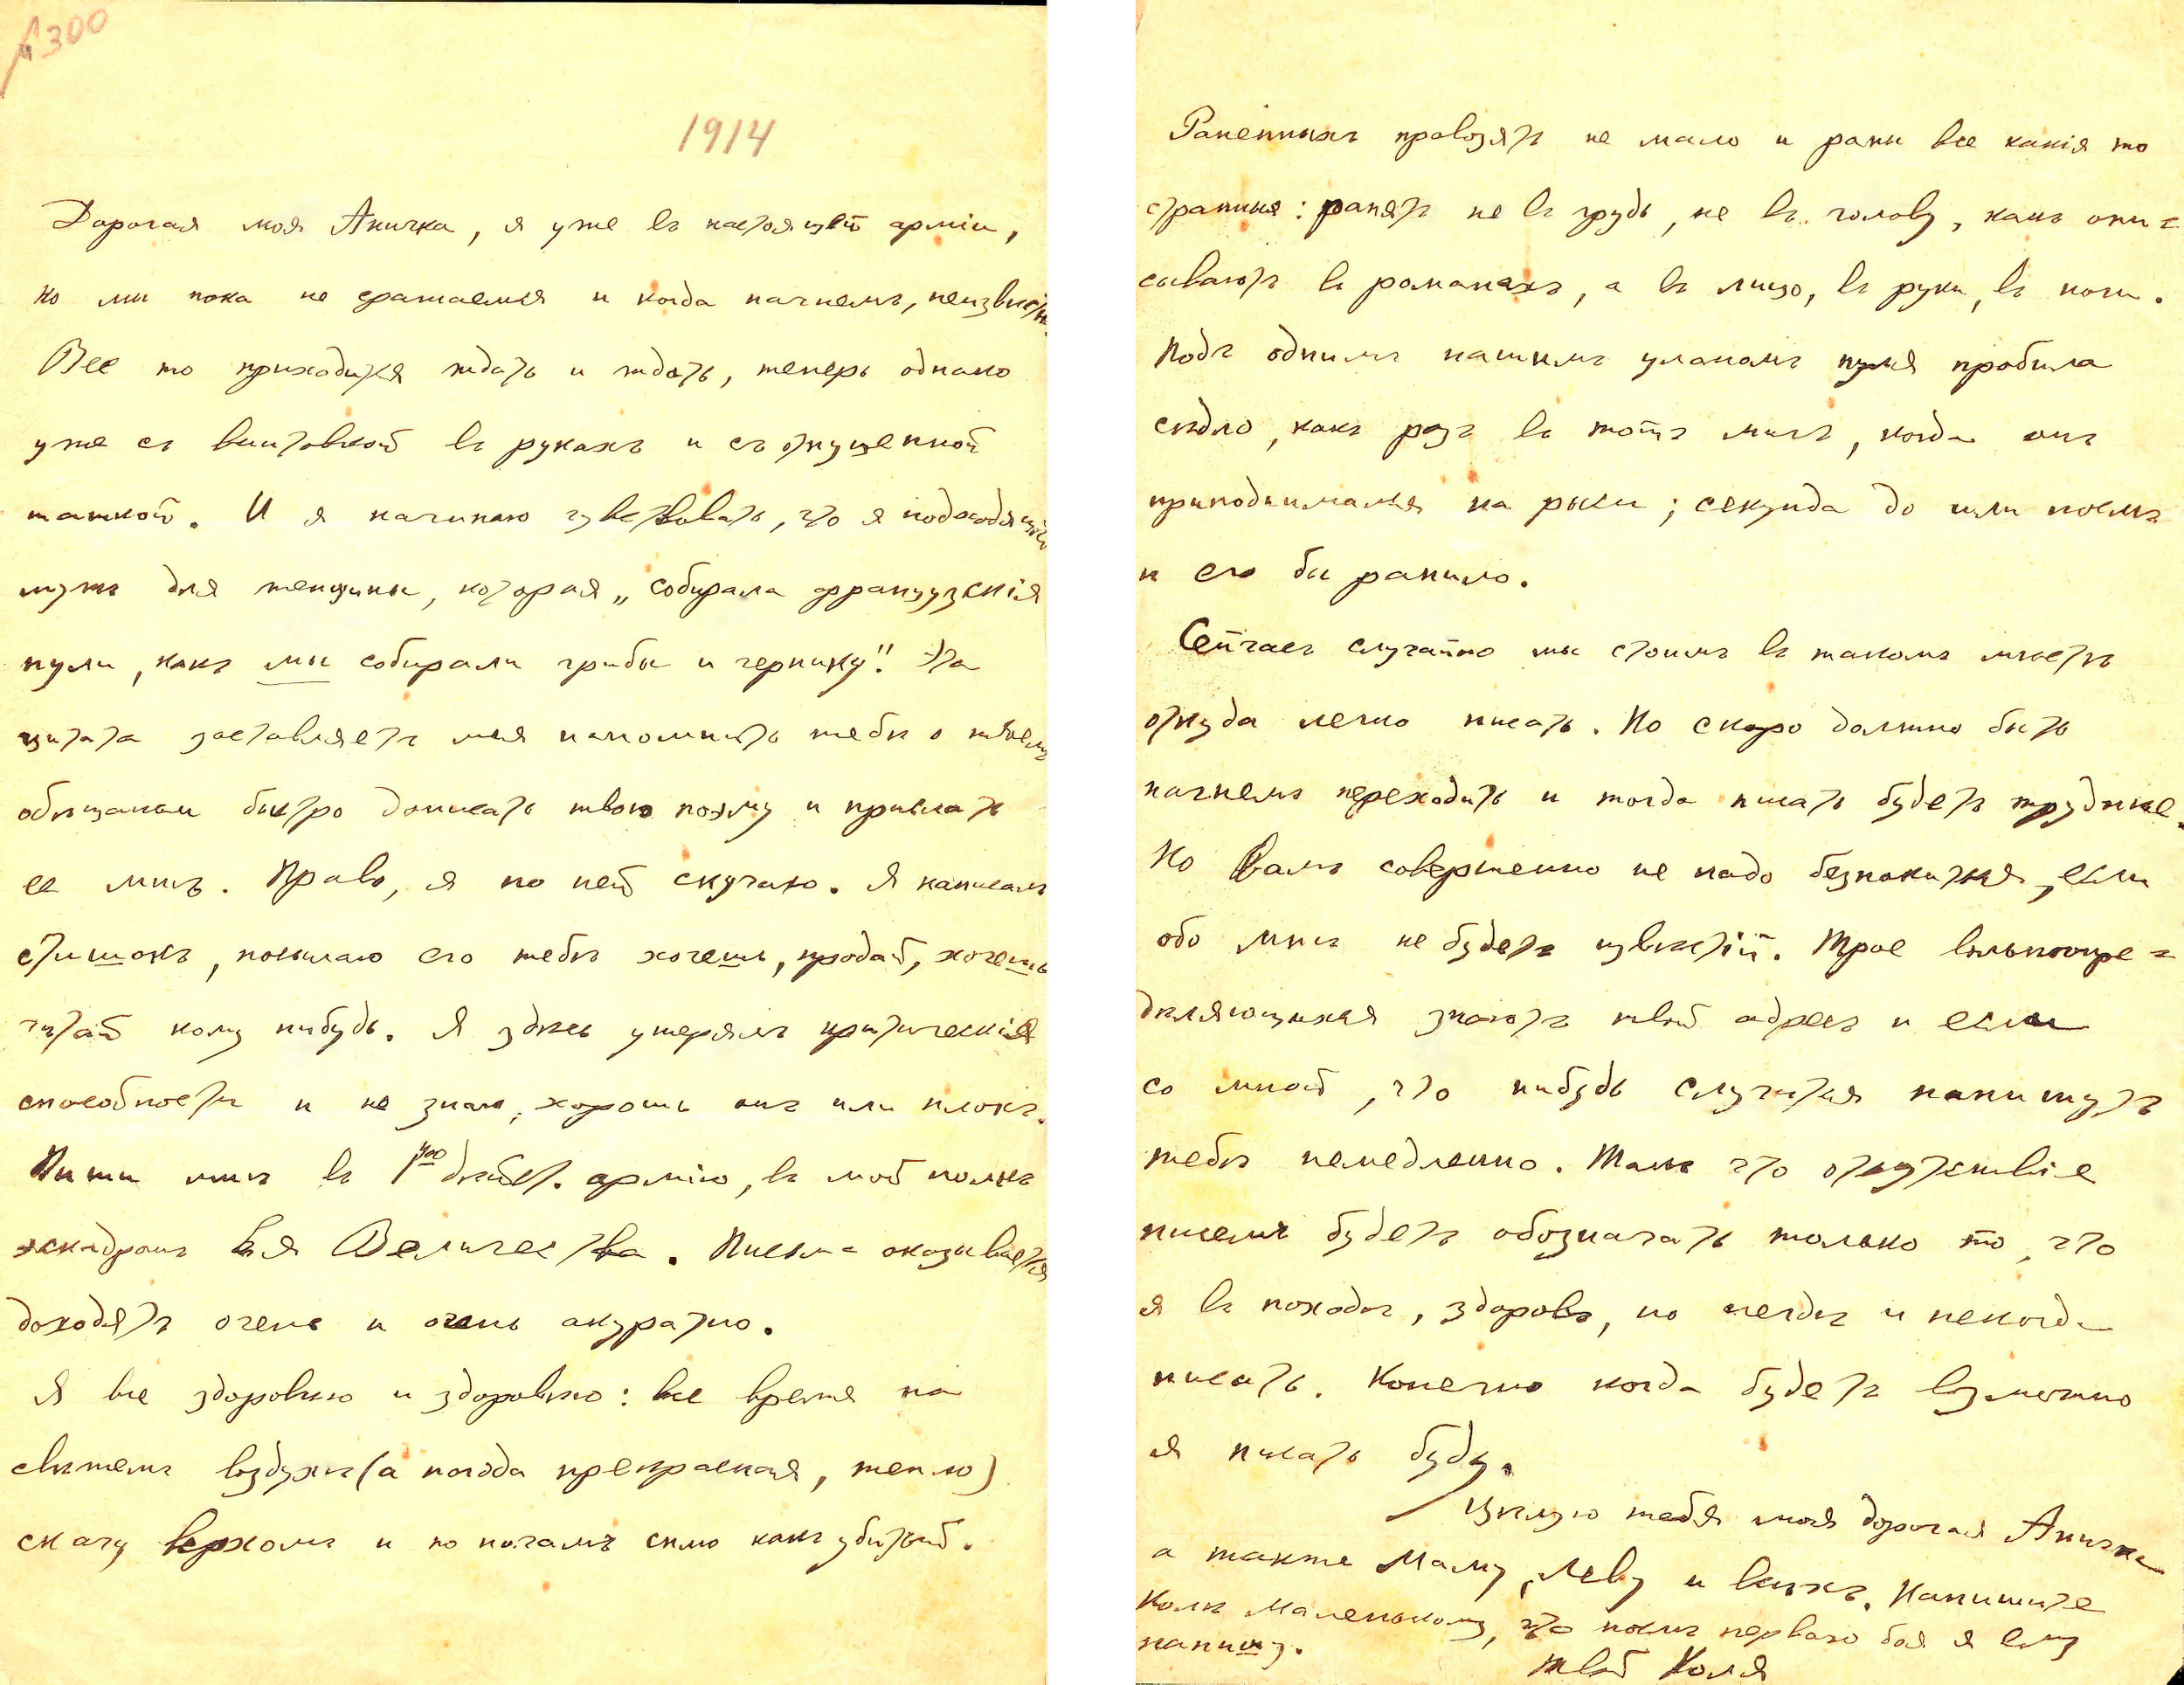 1300
1914
Дорогая моя Аничка, я уже въ настоящей арміи,
но мы пока не сражаемся и когда начнемъ, неизвѣстн
Все то приходится ждать и ждать, теперь однако
уже съ винтовкой въ рукахъ и съ отпущенной
шашкой. И я начинаю чувствовать, что я подходящій
мужъ для женщины, которая „собирала французскія
пули, какъ мы собирали грибы и чернику". Эта
цитата заставляетъ меня напомнить тебѣ о твоемъ
обѣщаньи быстро дописать твою поэму и прислать
ее мнѣ. Право, я по ней скучаю. Я написалъ
стишокъ, посылаю его тебѣ хочешь, продай, хочешь
читай кому нибудь. Я здѣсь утерялъ критическія
способности и не знаю, хорошъ онъ или плохъ.
Пиши мнѣ въ 1ую дѣйст. армію, въ мой полкъ
эскадронъ Ея Величества. Письма оказывается
доходятъ очень и очень акуратно.
Я все здоровѣю и здоровѣю: все время на
свѣжемъ воздухѣ (а погода прекрасная, тепло)
скачу верхомъ и по ночамъ сплю какъ убитый.
Раненныхъ привозятъ не мало и раны все какія то
странныя: ранятъ не въ грудь, не въ голову, какъ опи=
сываютъ въ романахъ, а въ лицо, въ руки, въ ноги.
Подъ однимъ нашимъ уланомъ пуля пробила
сѣдло, какъ разъ въ тотъ мигъ, когда онъ
приподнимался на рыси; секунда до или послѣ
и его бы ранило.
Сейчасъ случайно мы стоимъ въ такомъ мѣстѣ
откуда легко писать. Но скоро должно быть
начнемъ переходить и тогда писать будетъ труднѣе.
Но Вамъ совершенно не надо безпокиться, если
обо мнѣ не будетъ извѣстій. Трое вольноопре=
дѣляющихся знаютъ твой адресъ и если
со мной, что нибудь случится напишутъ
тебѣ немедленно. Такъ что отсутствіе
писемъ будетъ обозначать только то, что
я въ походѣ, здоровъ, но негдѣ и некогда
писать. Конечно когда будетъ возможно
я писать буду.
Цѣлую тебя моя дорогая Аничка
а также Маму, Леву и всѣхъ. Напишите
Колѣ маленькому, что послѣ перваго боя я ему
напишу.
твой Коля